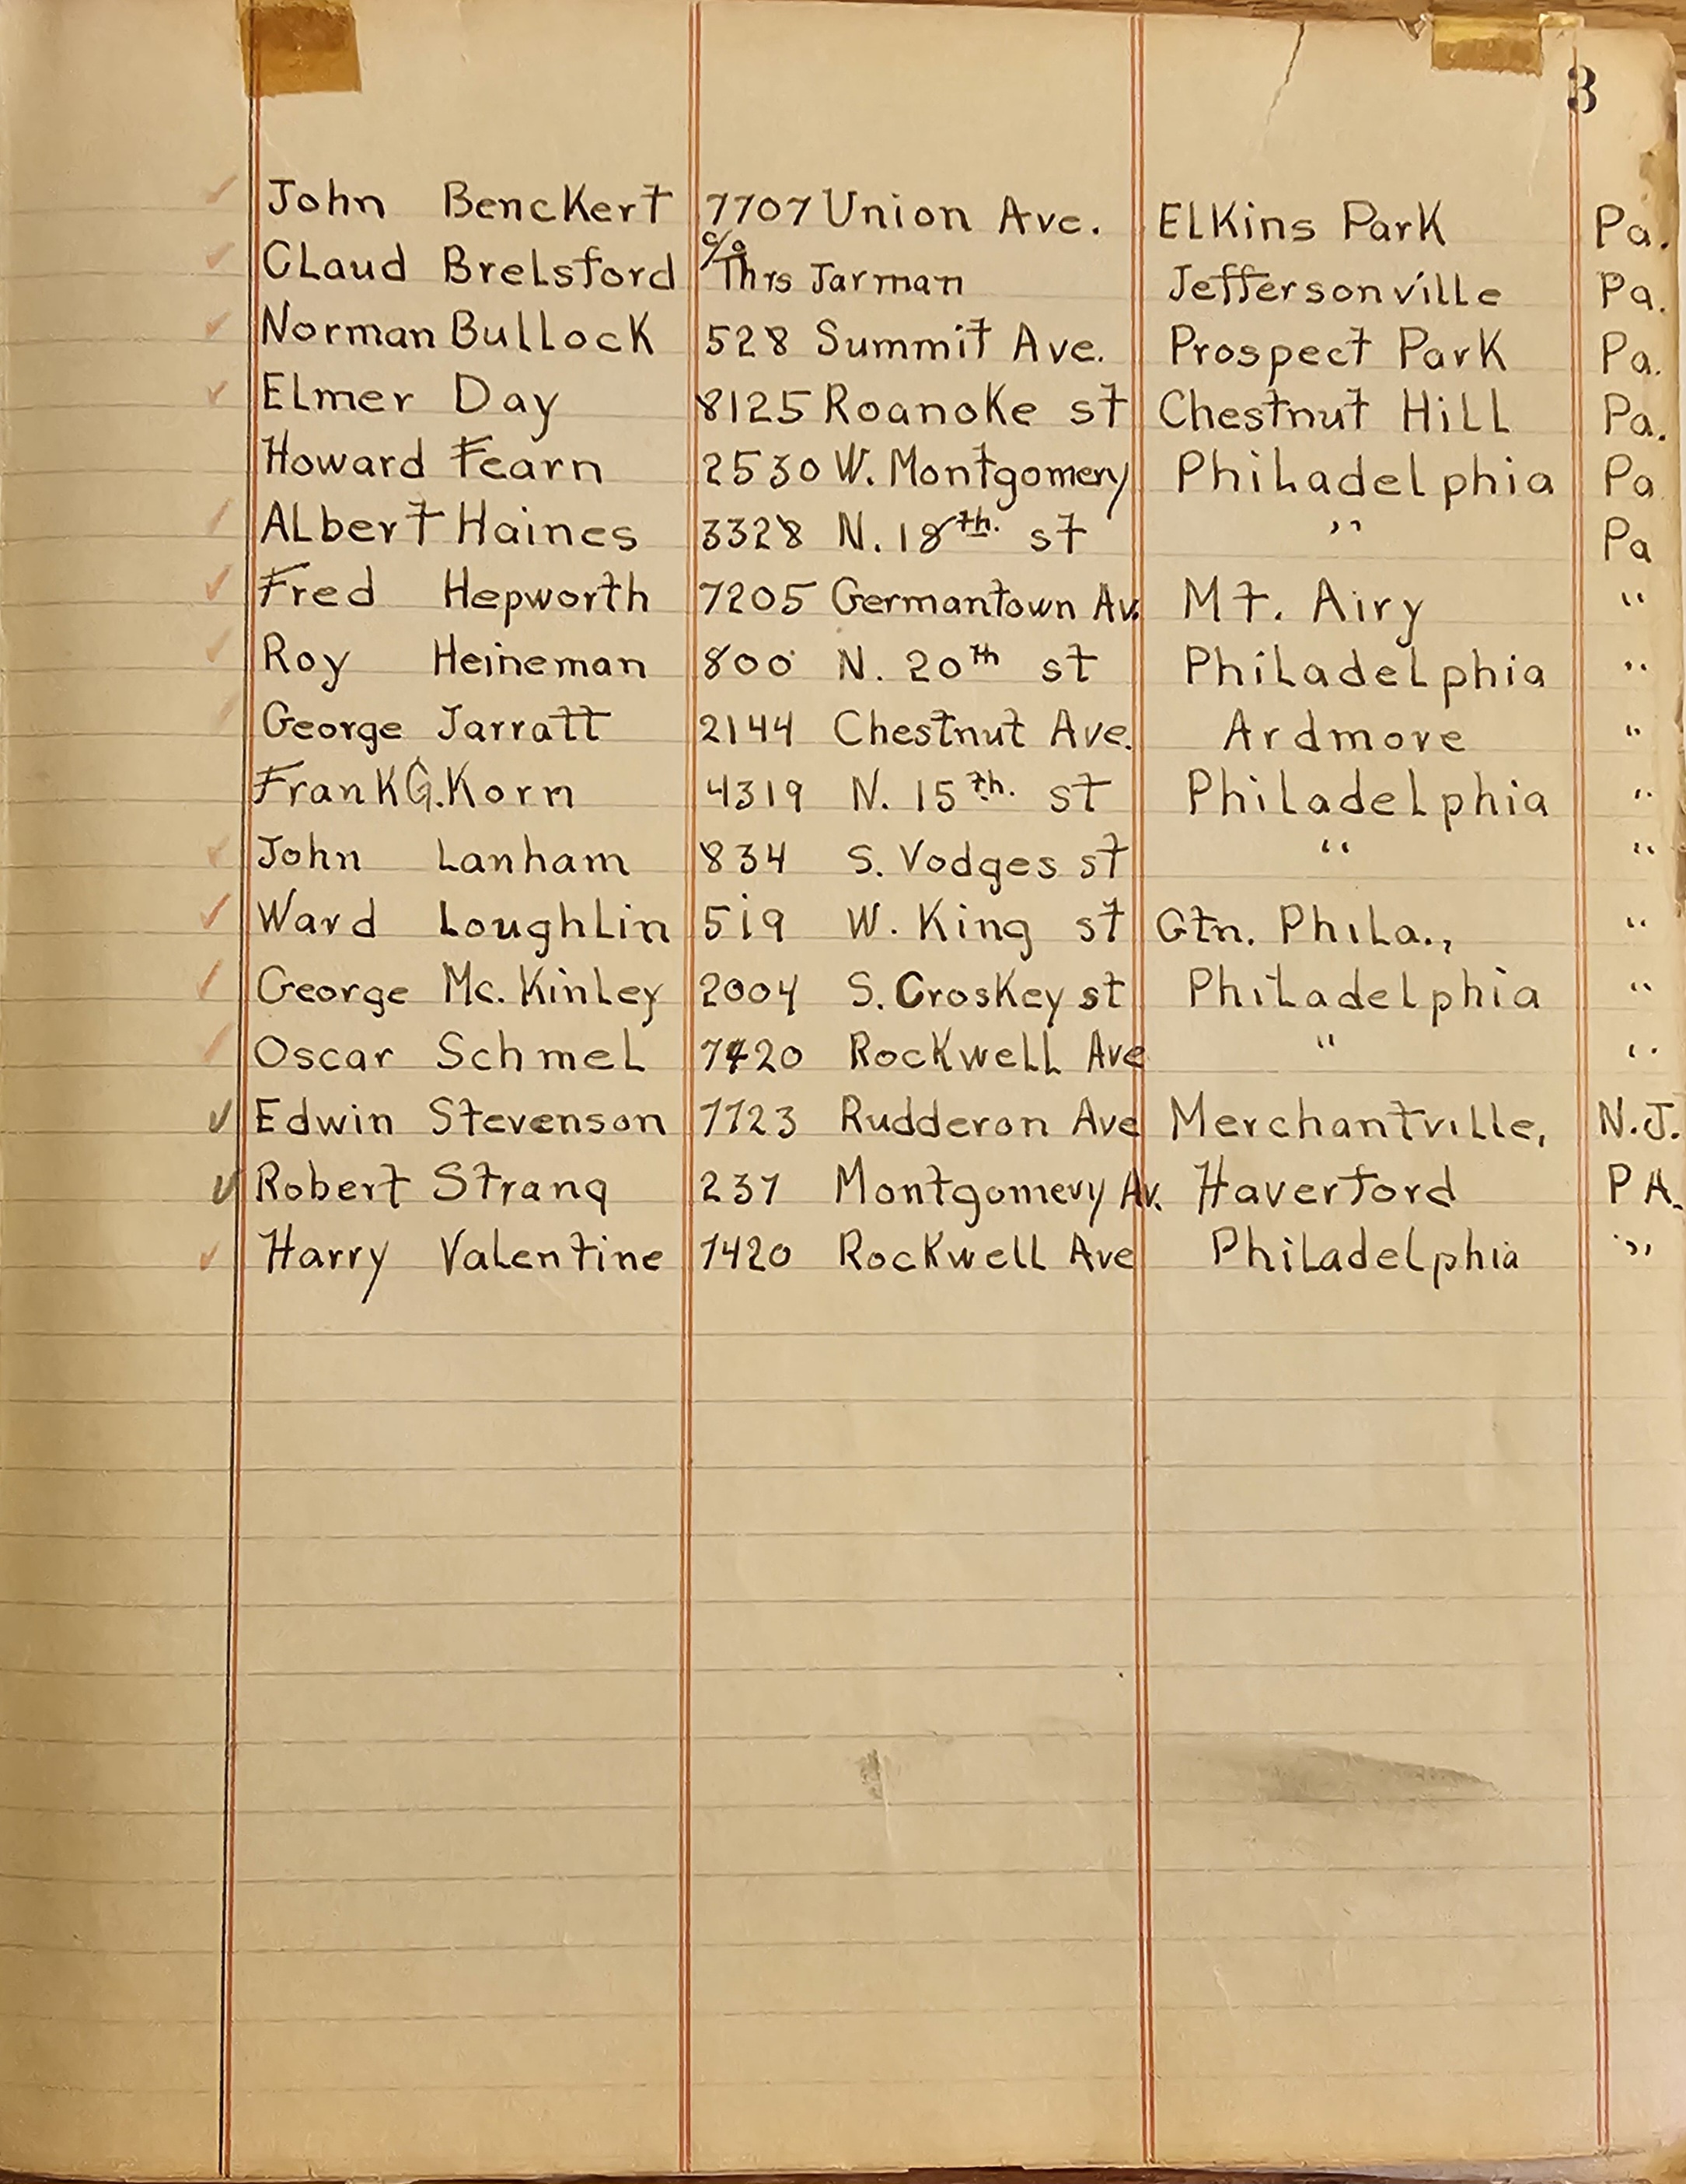 3
John Benckert 7707 Union Ave. Elkins Park Pa.
Claud Brelsford c/o Thrs Jarman Jeffersonville Pa.
Norman Bullock 528 Summit Ave. Prospect Park Pa.
Elmer Day 8125 Roanoke st Chestnut Hill Pa.
Howard Fearn 2530 W. Montgomery Philadelphia Pa
Albert Haines 3328 N. 18th. st " Pa
Fred Hepworth 7205 Germantown Av. Mt. Airy "
Roy Heineman 800 N. 20th st Philadelphia "
George Jarratt 2144 Chestnut Ave. Ardmore "
Frank G. Korn 4319 N. 15th. st Philadelphia "
John Lanham 834 S. Vodges st " "
Ward Loughlin 519 W. King st Gtn. Phila., "
George Mc. Kinley 2004 S. Croskey st Philadelphia "
Oscar Schmel 7420 Rockwell Ave " "
Edwin Stevenson 7723 Rudderon Ave Merchantville, N.J.
Robert Strang 237 Montgomery Av. Haverford PA.
Harry Valentine 7420 Rockwell Ave Philadelphia "